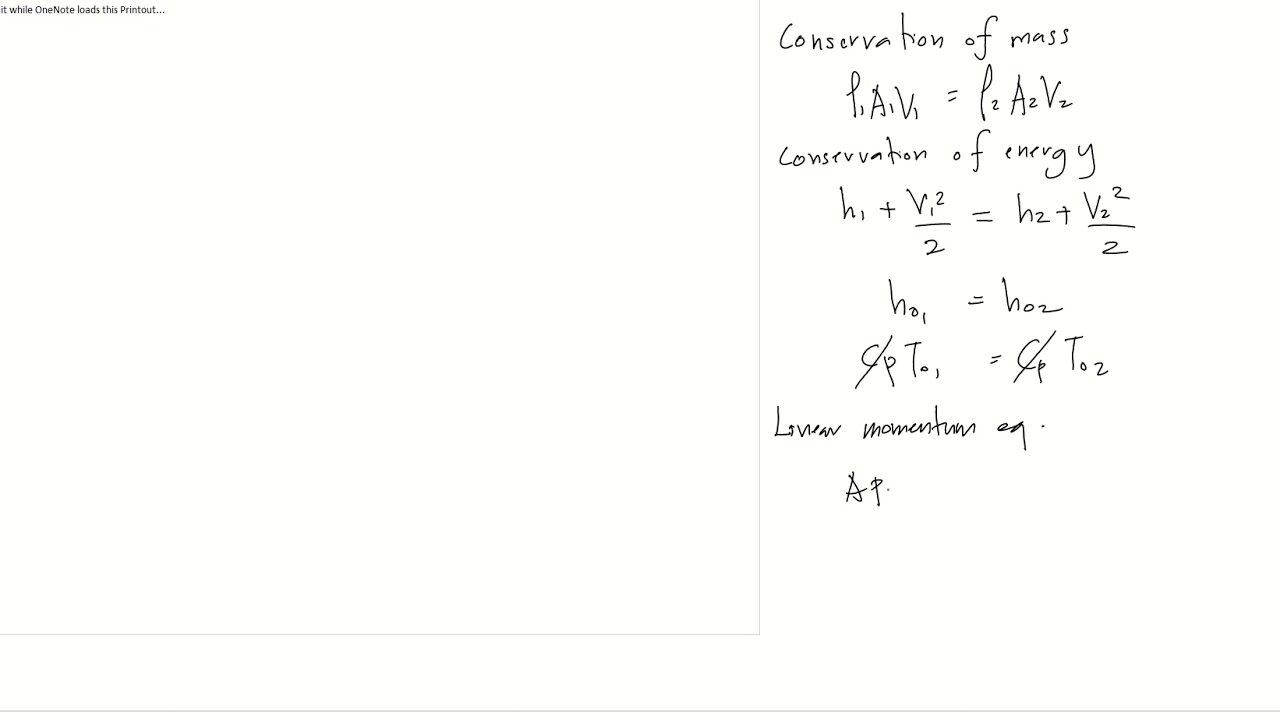 it while OneNote loads this Printout...
Conservation of mass
ρ₁A₁V₁ = ρ₂A₂V₂
Conservation of energy
h₁ + V₁²/2 = h₂ + V₂²/2
h₀₁ = h₀₂
CpT₀₁ = CpT₀₂
Linear momentum eq.
AP.